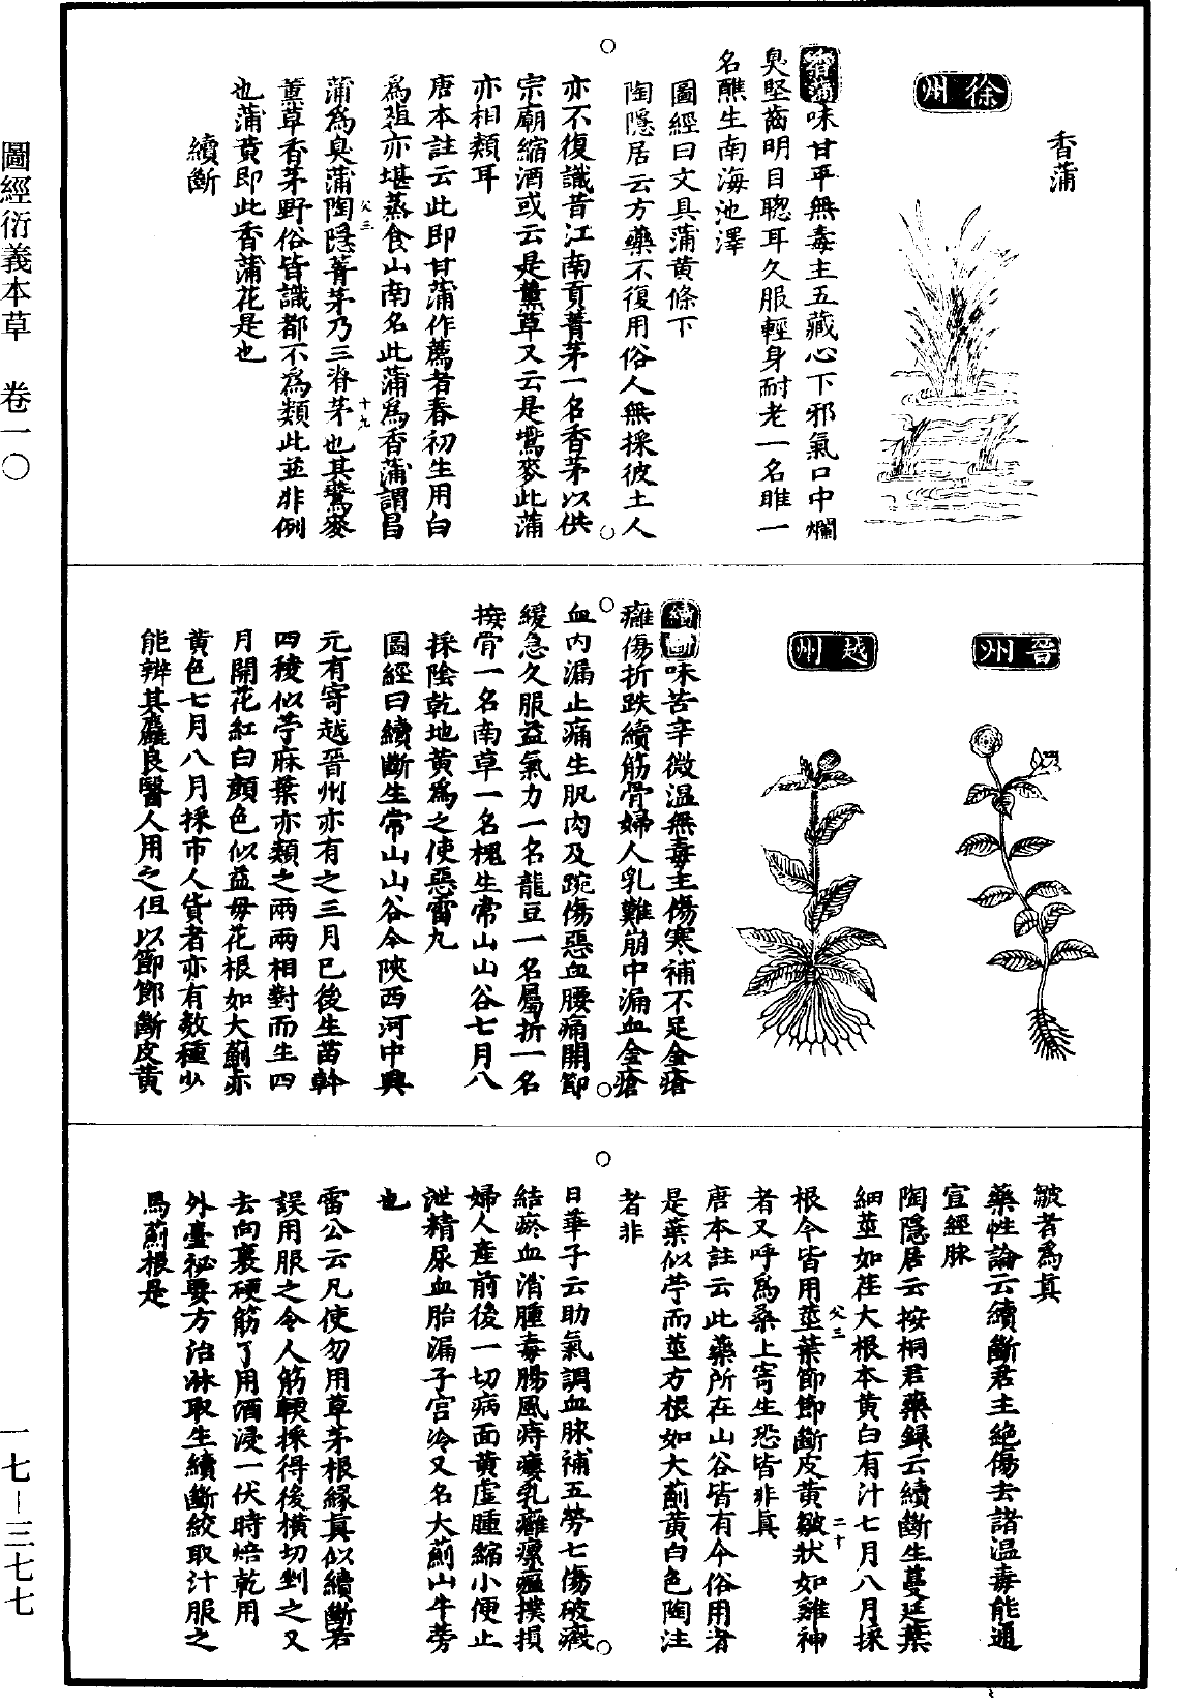 圖經衍義本草　卷一〇
一七—三七七
香蒲
徐州
香蒲味甘平無毒主五藏心下邪氣口中爛
臭堅齒明目聰耳久服輕身耐老一名睢一
名醮生南海池澤
圖經曰文具蒲黃條下
陶隱居云方藥不復用俗人無採彼土人
亦不復識昔江南貢菁茅一名香茅以供
宗廟縮酒或云是薰草又云是鷰麥此蒲
亦相類耳
唐本註云此即甘蒲作薦者春初生用白
為葅亦堪蒸食山南名此蒲為香蒲謂昌
蒲為臭蒲陶隱菁茅乃三脊茅也其鷰麥
父三
十九
薰草香茅野俗皆識都不為類此並非例
也蒲黃即此香蒲花是也
續斷
晉州
越州
續斷味苦辛微溫無毒主傷寒補不足金瘡
癰傷折跌續筋骨婦人乳難崩中漏血金瘡
血內漏止痛生肌肉及踠傷惡血腰痛關節
緩急久服益氣力一名龍豆一名屬折一名
接骨一名南草一名槐生常山山谷七月八
採陰乾地黃為之使惡雷丸
圖經曰續斷生常山山谷今陝西河中興
元有寄越晉州亦有之三月已後生苗幹
四稜似苧麻葉亦類之兩兩相對而生四
月開花紅白顏色似益母花根如大薊赤
黃色七月八月採市人貨者亦有數種少
能辨其麤良醫人用之但以節節斷皮黃
皺者為真
藥性論云續斷君主絕傷去諸溫毒能通
宣經脉
陶隱居云按桐君藥録云續斷生蔓延葉
細莖如荏大根本黃白有汁七月八月採
根今皆用莖葉節節斷皮黃皺狀如雞神
父三
二十
者又呼為桑上寄生恐皆非真
唐本註云此藥所在山谷皆有今俗用者
是葉似苧而莖方根如大薊黃白色陶注
者非
日華子云助氣調血脉補五勞七傷破癥
結瘀血消腫毒腸風痔瘻乳癰瘰癧撲損
婦人產前後一切病面黃虛腫縮小便止
泄精尿血胎漏子宮冷又名大薊山牛蒡
也
雷公云凡使勿用草茅根緣真似續斷若
誤用服之令人筋輭採得後橫切剉之又
去向裏硬筋了用酒浸一伏時焙乾用
外臺祕要方治淋取生續斷絞取汁服之
馬薊根是